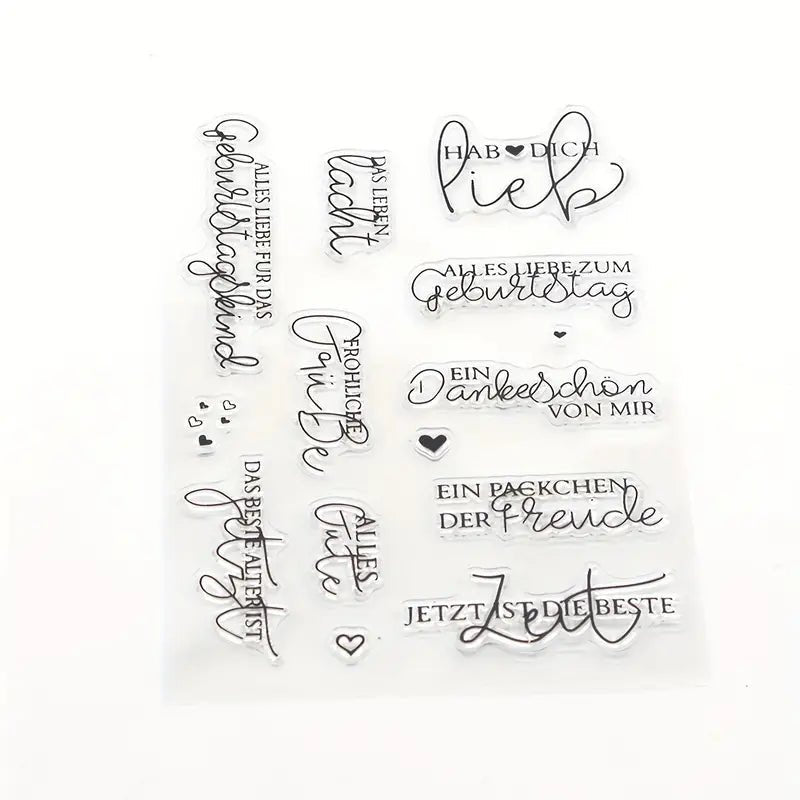 ALLES LIEBE FÜR DAS
Geburtstagskind
DAS BESTE ALTER IST
jetzt
DAS LEBEN
lacht
FRÖHLICHE
Grüße
ALLES
Gute
HAB DICH
lieb
ALLES LIEBE ZUM
Geburtstag
EIN
Dankeschön
VON MIR
EIN PÄCKCHEN
DER Freude
JETZT IST DIE BESTE
Zeit